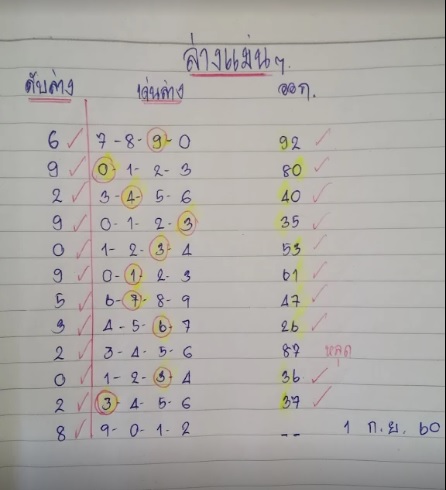 ล่างแม่นๆ
ดับล่าง เด่นล่าง ออก.
6 7-8-9-0 92
9 0-1-2-3 80
2 3-4-5-6 40
9 0-1-2-3 35
0 1-2-3-4 53
9 0-1-2-3 61
5 6-7-8-9 47
3 4-5-6-7 26
2 3-4-5-6 87 หลุด
0 1-2-3-4 36
2 3-4-5-6 37
8 9-0-1-2 -- 1 ก.ย. 60